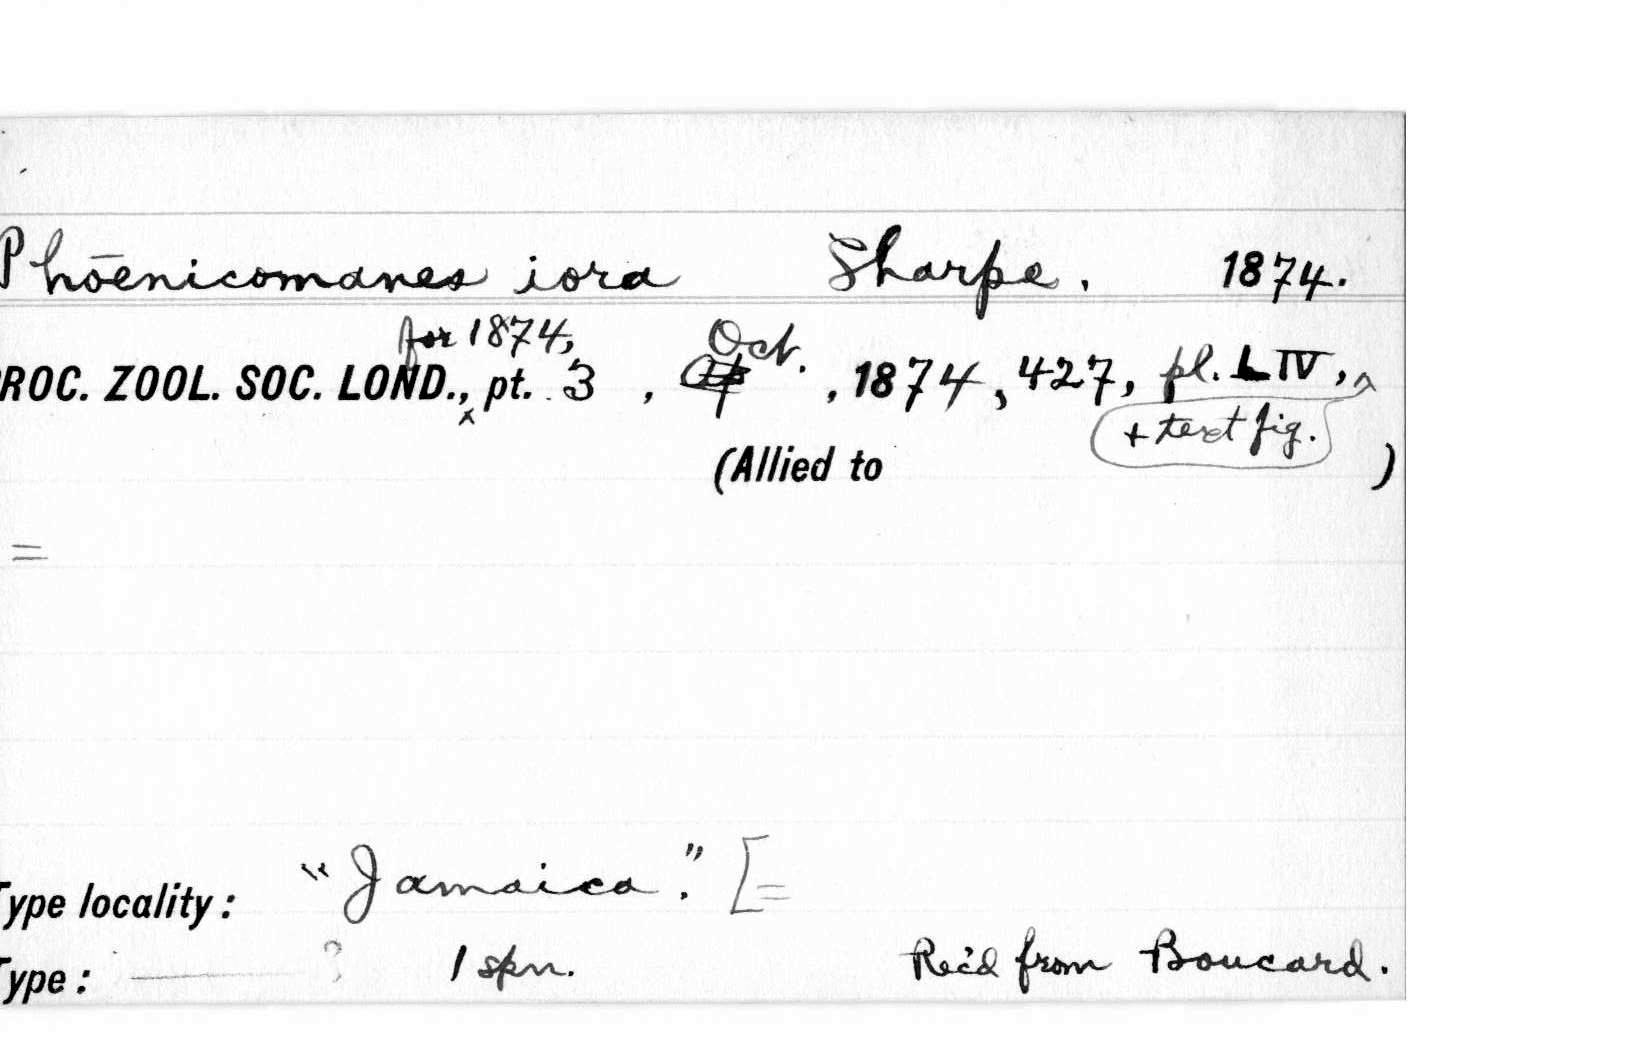 Phōenicomanes iora Sharpe. 1874.
for 1874, Oct.
ROC. ZOOL. SOC. LOND., pt. 3 , , 1874, 427, pl. LIV, ^
+ text fig.
(Allied to )
=
Type locality: "Jamaica." [=
Type: ——— ? 1 spn. Rec'd from Boucard.